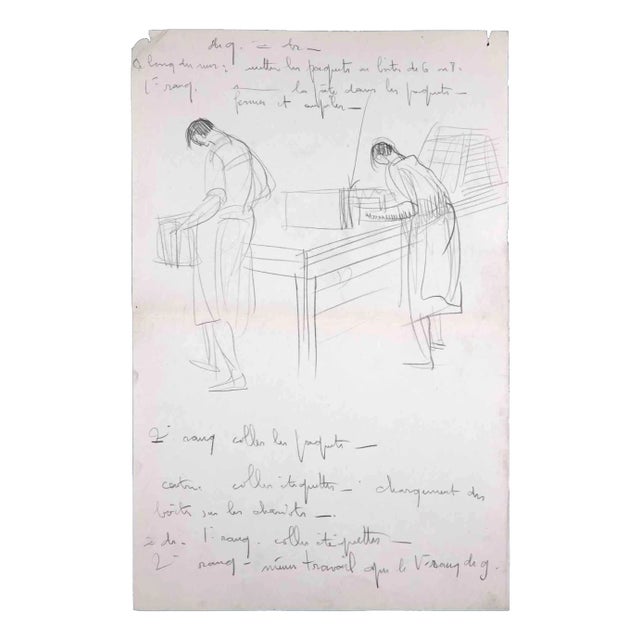 de g. à dr —
le long du mur: mettre les paquets en boîtes de 6 ou 8.
1er rang. la pâte dans les paquets —
fermer et empiler —
2e rang coller les paquets —
coller étiquettes — chargement des
boîtes sur les chariots —
à dr. 1er rang. coller étiquettes —
2e rang — même travail que le 1er rang de g.